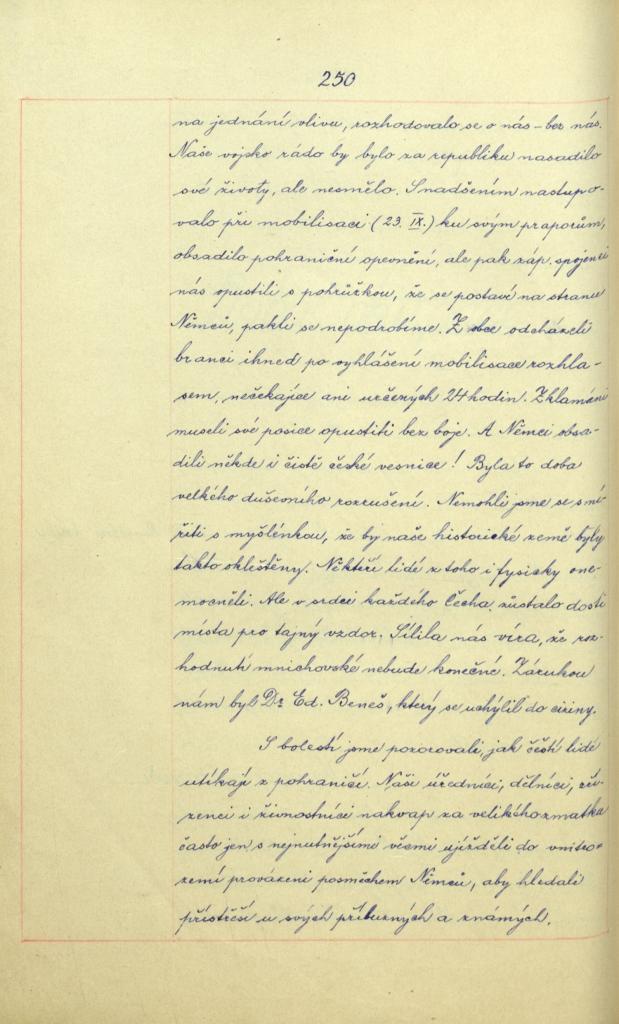 250
na jednání vlivu, rozhodovalo se o nás – bez nás.
Naše vojsko rádo by bylo za republiku nasadilo
své životy, ale nesmělo. S nadšením nastupo-
valo při mobilisaci (23. IX.) ku svým praporům,
obsadilo pohraniční opevnění, ale pak záp. spojenci
nás opustili s pohrůžkou, že se postaví na stranu
Němců, pakli se nepodrobíme. Z obce odcházeli
branci ihned po vyhlášení mobilisace rozhla-
sem, nečekajíce ani určených 24 hodin. Zklamáni
museli své posice opustiti bez boje. A Němci obsa-
dili někde i čistě české vesnice! Byla to doba
velkého duševního rozrušení. Nemohli jsme se smí-
řiti s myšlénkou, že by naše historické země byly
takto okleštěny. Někteří lidé z toho i fysicky one-
mocněli. Ale v srdci každého Čecha zůstalo dosti
místa pro tajný vzdor. Sílila nás víra, že roz-
hodnutí mnichovské nebude konečné. Zárukou
nám byl Dr Ed. Beneš, který se uchýlil do ciziny.
S bolestí jsme pozorovali, jak čeští lidé
utíkají z pohraničí. Naši úředníci, dělníci, zří-
zenci i živnostníci nakvap za velikého zmatku
často jen s nejnutnějšími věcmi ujížděli do vnitro-
zemí provázeni posměchem Němců, aby hledali
přístřeší u svých příbuzných a známých.